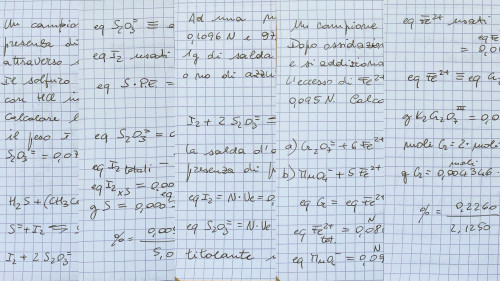 Un campion
presenza di
attraverso
Il solfuro
con HCl in
Calcolare l
il peso I
S₂O₃⁼ = 0,07
H₂S + (CH₃C
S⁼ + I₂ ⇆ S
I₂ + 2 S₂O₃⁼
eq S₂O₃⁼ ≡ e
eq I₂ usati
eq S · P.E. =
eq S₂O₃⁼ = 0
eq I₂ totali −
eq I₂ₓS = 0,00
g S = 0,000 eq
% = 0,009
5,0
Ad una
0,1096 N e 97
1g di salda
o no di azzu
I₂ + 2 S₂O₃⁼ =
la salda d'
presenza di
eq I₂ = N · Ve = 0,
eq S₂O₃⁼ = N · Ve
titolante
Un campione
Dopo ossidazion
e si addiziona
L'eccesso di Fe²⁺
0,095 N. Calc
a) Cr₂O₇⁼ + 6 Fe²⁺
b) MnO₄⁻ + 5 Fe²⁺
eq Cr = eq Fe²⁺
eq Fe²⁺ tot. = 0,08 N
eq MnO₄⁻ = 0,09 N
eq Fe²⁺ usati
eq Fe
= 0,0
eq Fe²⁺ ≡ eq C
g K₂Cr₂O₇ = 0,0
moli Cr = 2 · moli
g Cr = 0,004346 · moli
% = 0,2260
2,1250